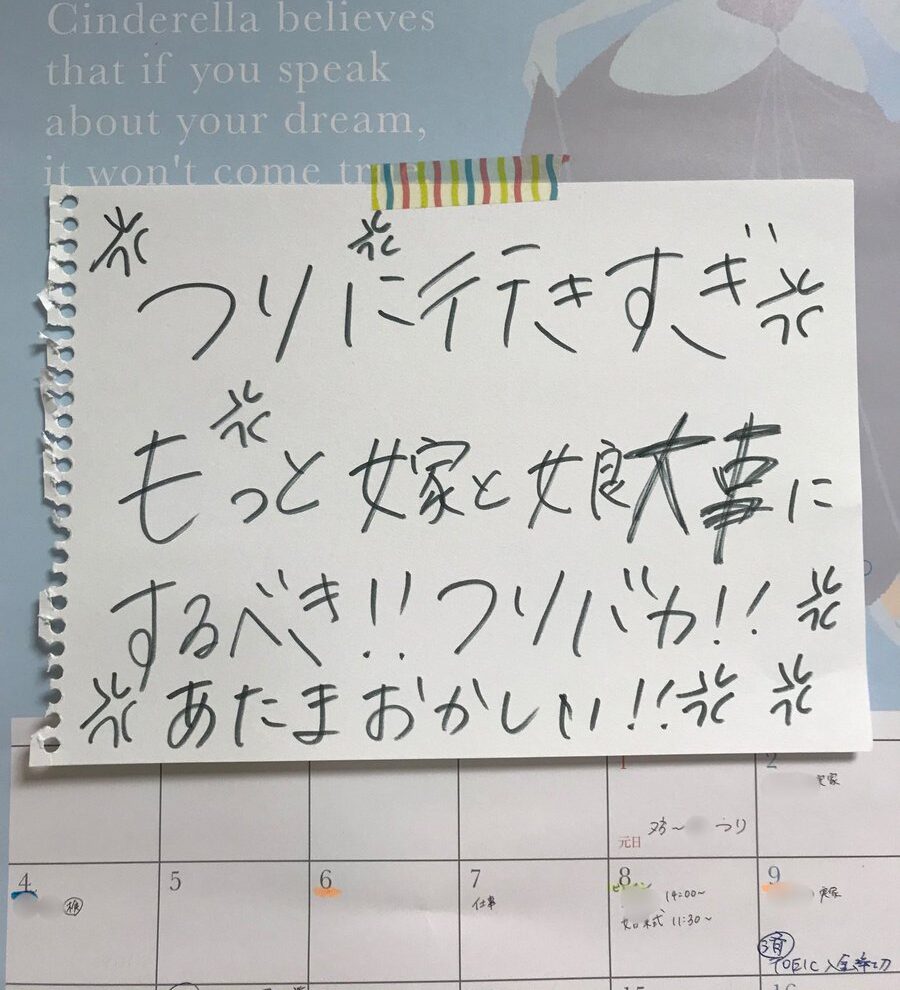 Cinderella believes
that if you speak
about your dream,
it won't come true
つりに行きすぎ
もっと嫁と娘大事に
するべき!!つりバカ!!
あたまおかしい!!
1 2
元日 夕方~ つり 実家
4 5 6 7 8 9
仕事 14:00~ 実家
11:30~
済
TOEIC 入金〆切
15 16